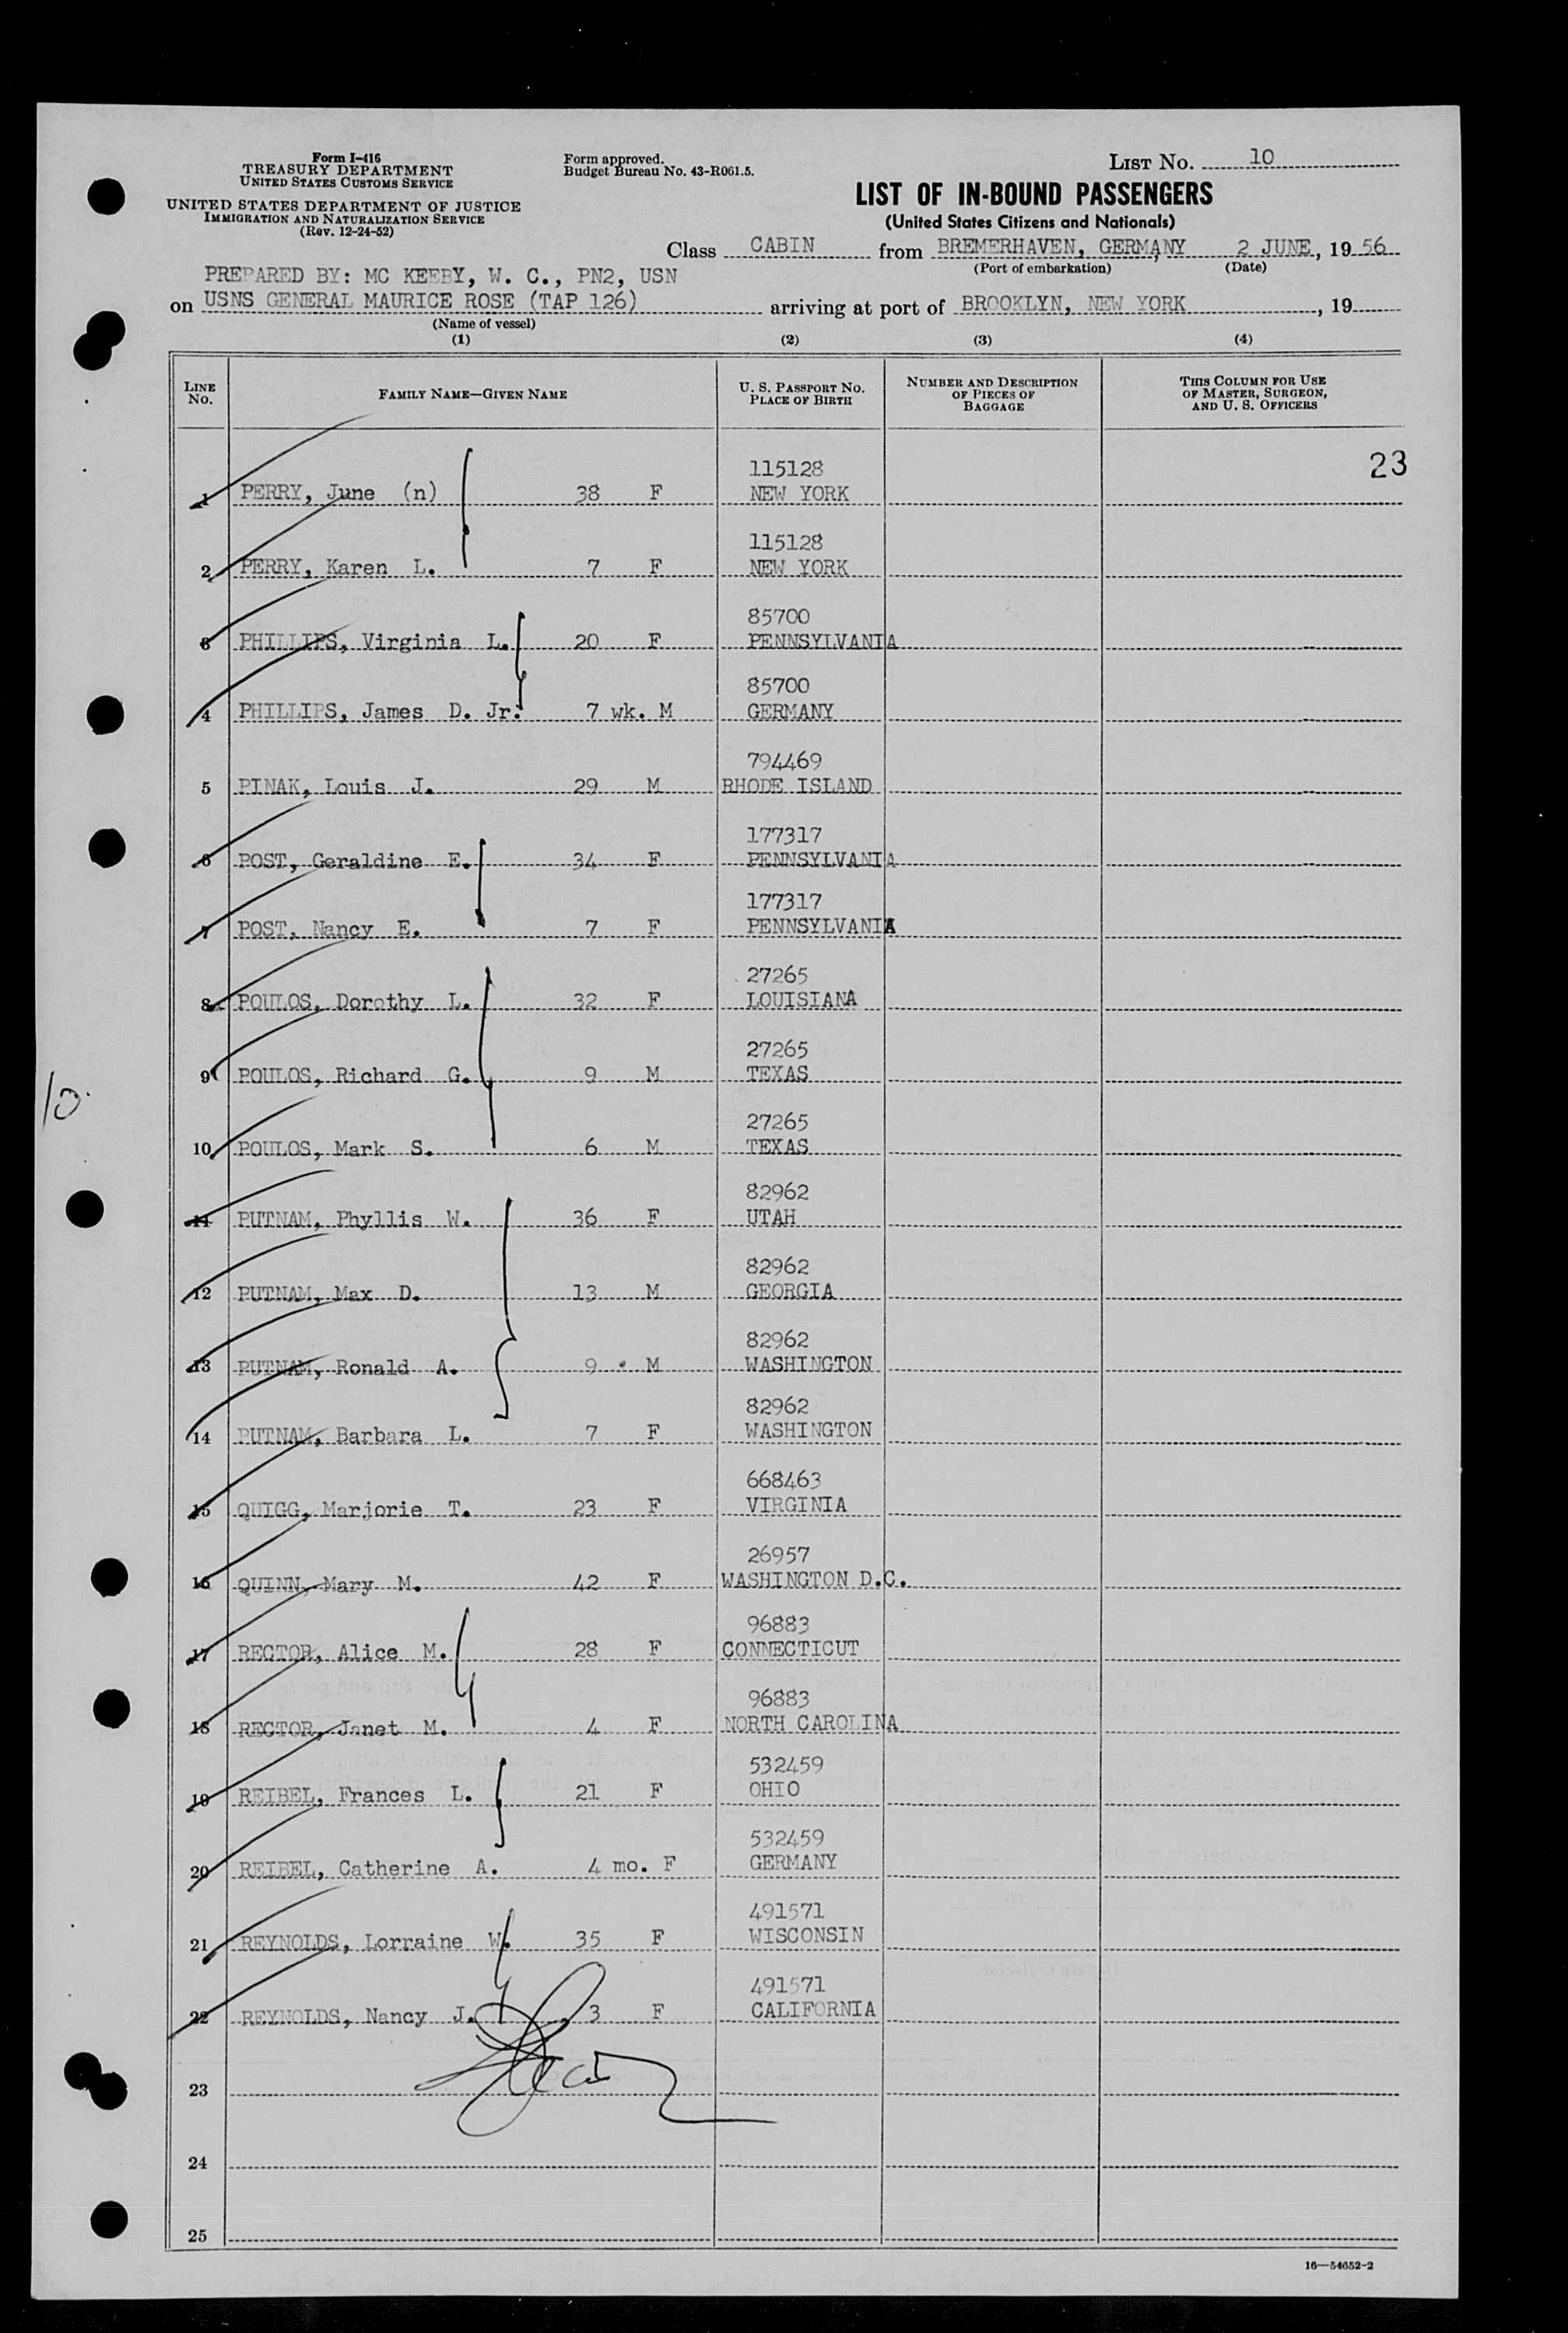 Form I-416
TREASURY DEPARTMENT
UNITED STATES CUSTOMS SERVICE
UNITED STATES DEPARTMENT OF JUSTICE
IMMIGRATION AND NATURALIZATION SERVICE
(Rev. 12-24-52)
Form approved.
Budget Bureau No. 43-R061.5.
LIST NO. 10
LIST OF IN-BOUND PASSENGERS
(United States Citizens and Nationals)
Class CABIN from BREMERHAVEN, GERMANY 2 JUNE, 1956
(Port of embarkation) (Date)
PREPARED BY: MC KEEBY, W. C., PN2, USN
on USNS GENERAL MAURICE ROSE (TAP 126) arriving at port of BROOKLYN, NEW YORK, 19
(Name of vessel)
(1) (2) (3) (4)
LINE NO. FAMILY NAME—GIVEN NAME U. S. PASSPORT NO. PLACE OF BIRTH NUMBER AND DESCRIPTION OF PIECES OF BAGGAGE THIS COLUMN FOR USE OF MASTER, SURGEON, AND U. S. OFFICERS
23
115128
1 PERRY, June (n) 38 F NEW YORK
115128
2 PERRY, Karen L. 7 F NEW YORK
85700
3 PHILLIPS, Virginia L. 20 F PENNSYLVANIA
85700
4 PHILLIPS, James D. Jr. 7 wk. M GERMANY
794469
5 PINAK, Louis J. 29 M RHODE ISLAND
177317
6 POST, Geraldine E. 34 F PENNSYLVANIA
177317
7 POST, Nancy E. 7 F PENNSYLVANIA
27265
8 POULOS, Dorothy L. 32 F LOUISIANA
27265
9 POULOS, Richard G. 9 M TEXAS
10
27265
10 POULOS, Mark S. 6 M TEXAS
82962
11 PUTNAM, Phyllis W. 36 F UTAH
82962
12 PUTNAM, Max D. 13 M GEORGIA
82962
13 PUTNAM, Ronald A. 9 M WASHINGTON
82962
14 PUTNAM, Barbara L. 7 F WASHINGTON
668463
15 QUIGG, Marjorie T. 23 F VIRGINIA
26957
16 QUINN, Mary M. 42 F WASHINGTON D.C.
96883
17 RECTOR, Alice M. 28 F CONNECTICUT
96883
18 RECTOR, Janet M. 4 F NORTH CAROLINA
532459
19 REIBEL, Frances L. 21 F OHIO
532459
20 REIBEL, Catherine A. 4 mo. F GERMANY
491571
21 REYNOLDS, Lorraine W. 35 F WISCONSIN
491571
22 REYNOLDS, Nancy J. 3 F CALIFORNIA
23
24
25
16—54652-2